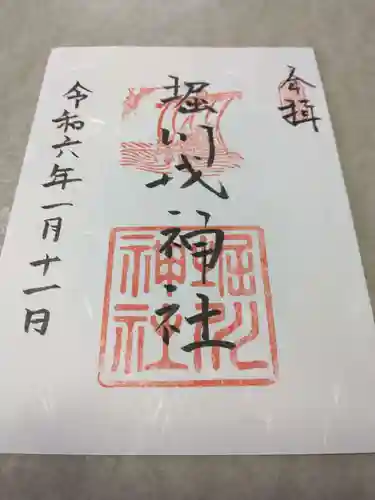 奉拝
堀川戎神社
令和六年一月十一日
堀川
神社